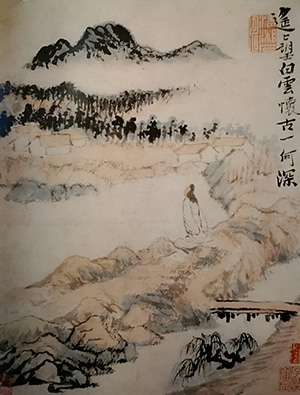 遙々望白雲懷古一何深